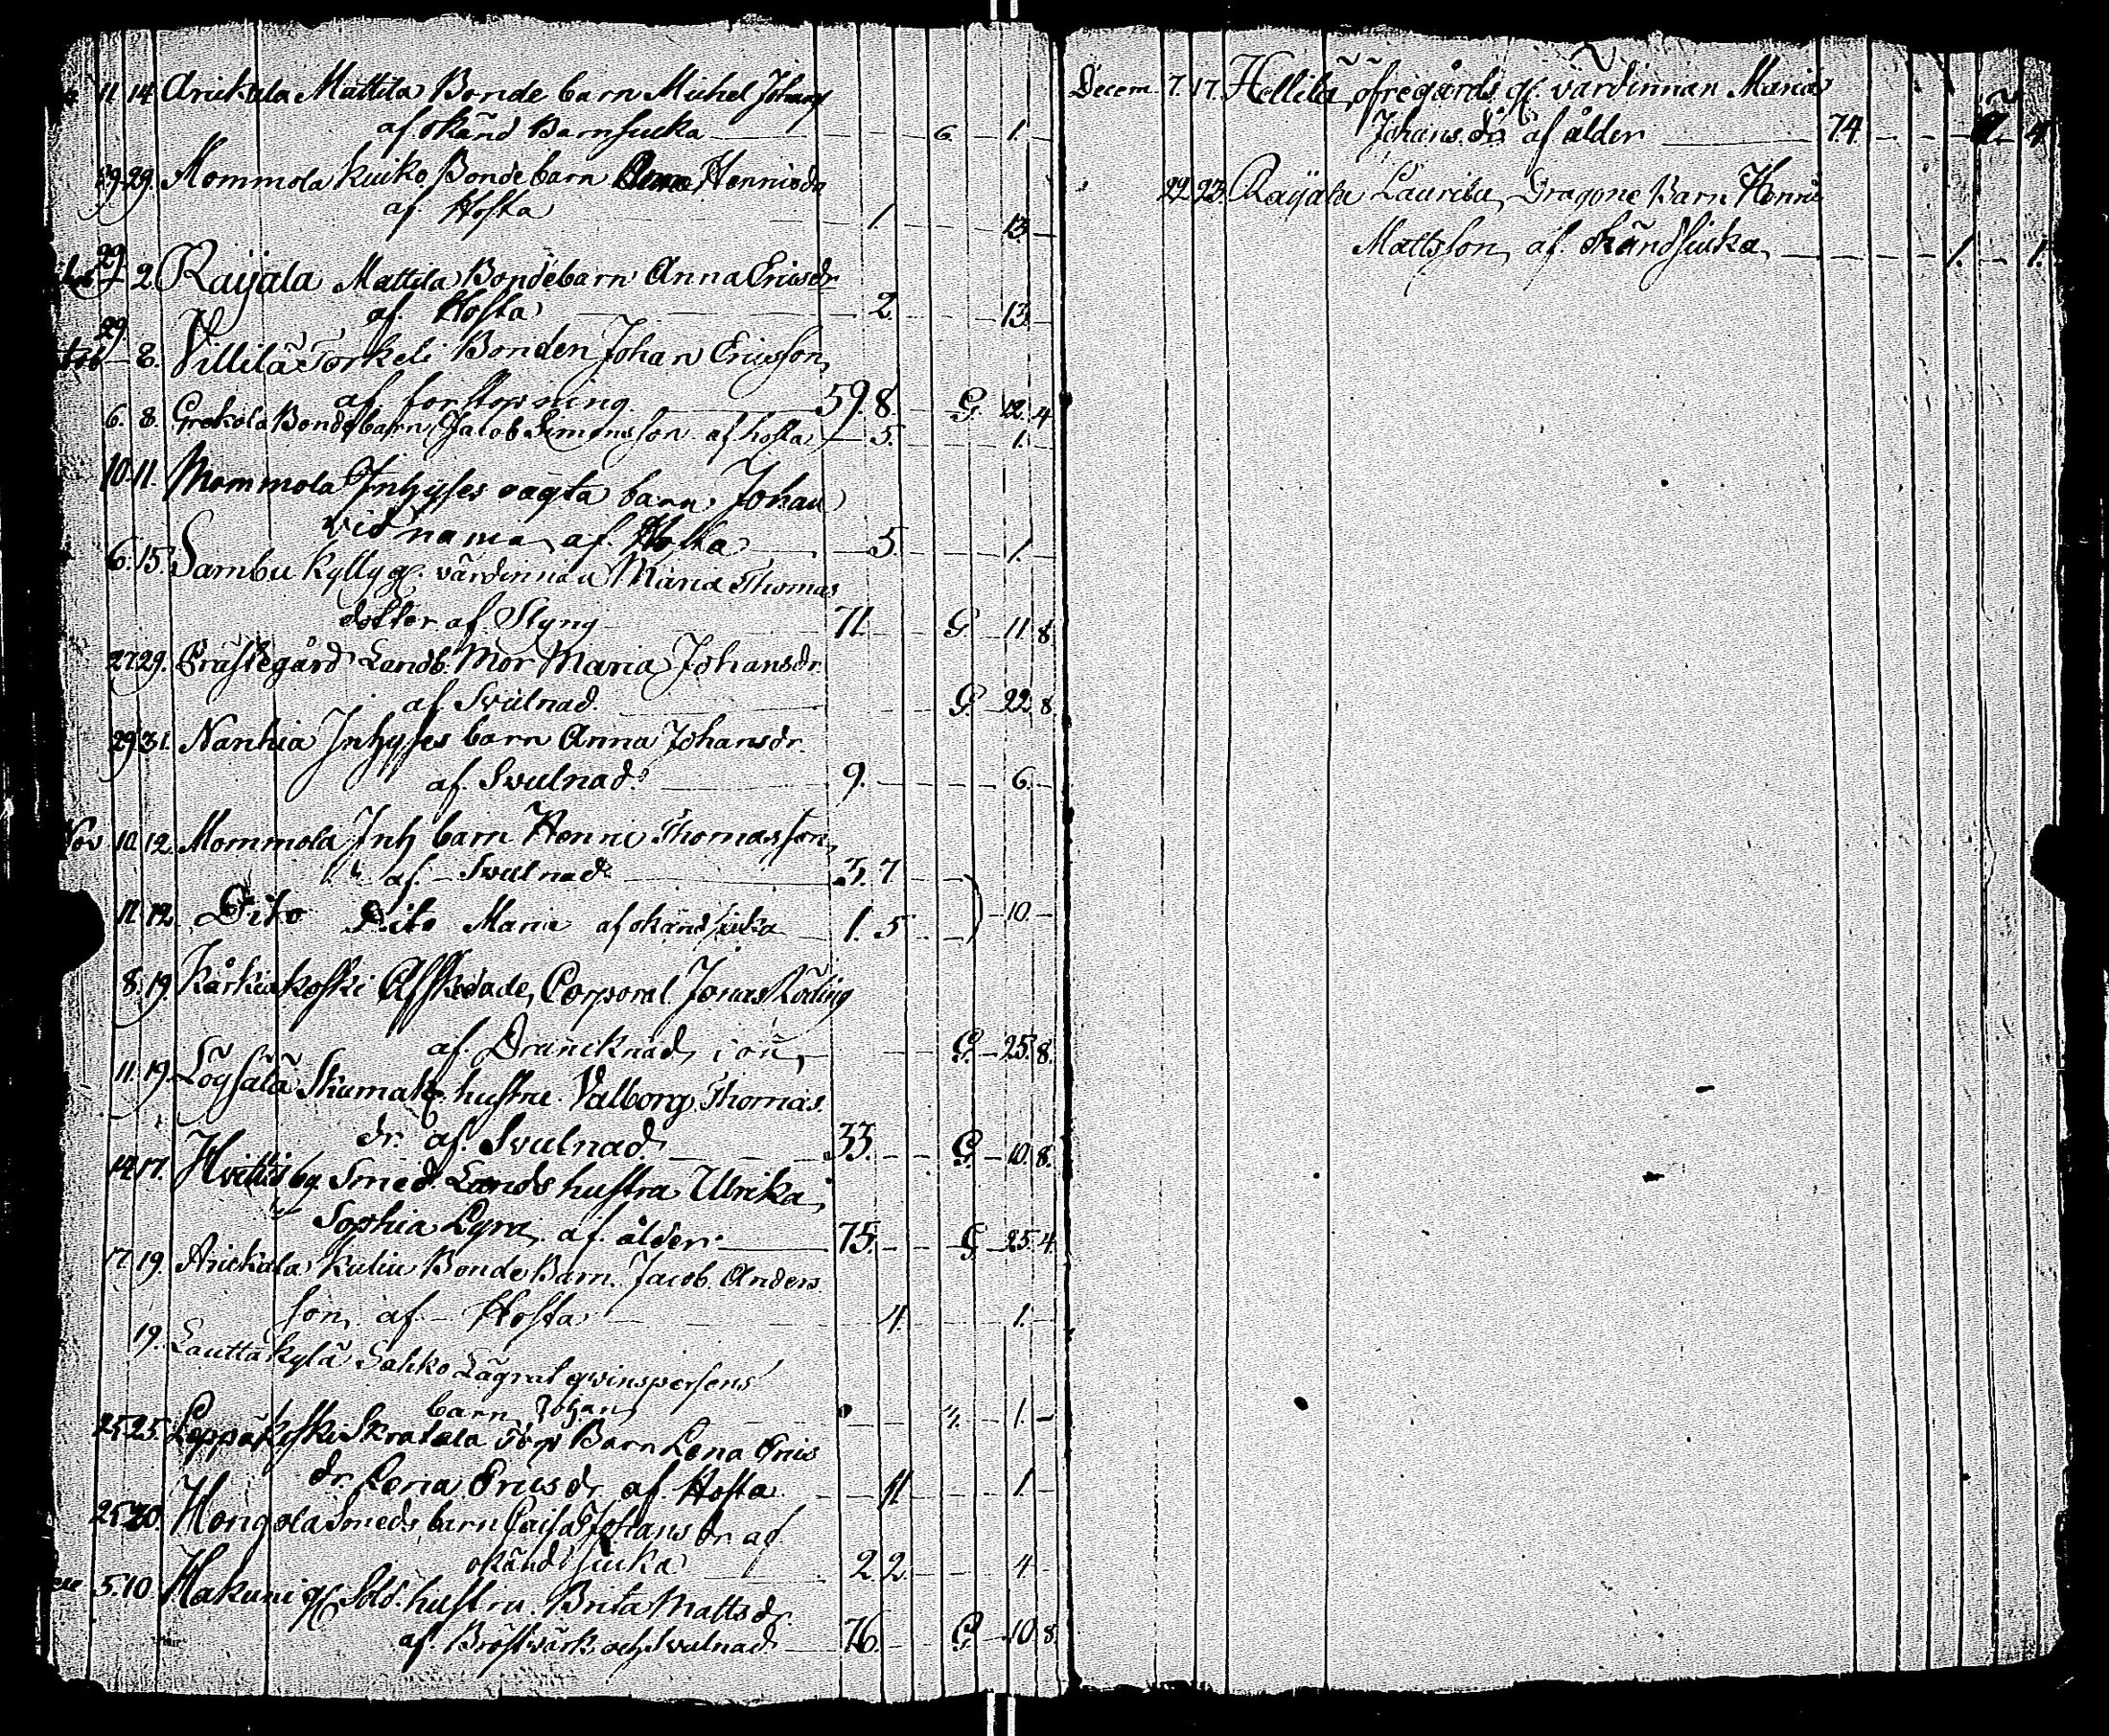 11. 14. Arickala Mattila Bonde barn Michel Johans
af okänd Barnsiuka 6. 1.
29. 29. Mommola Kuiko Bonde barn Henricsdr
af Hosta 1. 13.
29 2. Raijala Mattila Bondebarn Anna Ericsdr
af Hosta 2. 13.
29 8. Villilä Torkeli Bonden Johan Ericsson
af förstopning 59. 8. G. 12. 4
6. 8. Grekola Bondebarn Jacob Simonsson af hosta 5. 1.
10. 11. Mommola Inhyses barn Johan
vid namn af Hosta 5. 1.
6. 15. Sambu Kylly gl. värdinnan Maria Thomas
dotter af Styng 71. G. 11. 8.
27. 29. Prästegård Landb. Mor Maria Johansdr.
af Svulnad. G. 22. 8.
29. 31. Nanhia Inhyses barn Anna Johansdr.
af Svulnad. 9. 6.
Nov 10. 12. Mommola Inh barn Henric Thomasson
af Svulnad 3. 7
11. 12. Dito Dito Maria af okänd siuka 1. 5 10.
8. 19. Karhiakoski Affskedade Corporal Jonas Röding
af Drancknad i ån G. 25. 8.
11. 19. Löysälä Skumak. hustru Valborg Thomas
dr. af Svulnad. 33. G. 10. 8.
14. 17. Hvittis by Smed Lunds hustru Ulrika
Sophia Lyra af ålder. 75. G. 25. 4.
17. 19. Arickala Kuliu Bonde Barn Jacob Anders
son af Hosta 4. 1.
19. Lauttakylä Sahko Lägrat qwinspersons
barn Johan 1.
25. 25. Leppäkoski Skratala torp Barn Lena Erics
dr. Lena Ericsdr af Hosta 11. 1
25. 26. Hongola Smeds barn Caisa Johans dr af
okänd siuka 2 2. 4
5. 10. Hakuni gl. Sold. hustru Brita Mattsdr
af Bröstvärk och Svulnad 76. G. 10. 8.
Decem. 7. 17. Hellilä öfregårds gl. värdinnan Maria
Johans. dr af ålder 74. 4
22. 23. Raijala Laurila Dragone Barn Henric
Mattsson af okänd siuka 1. 1.